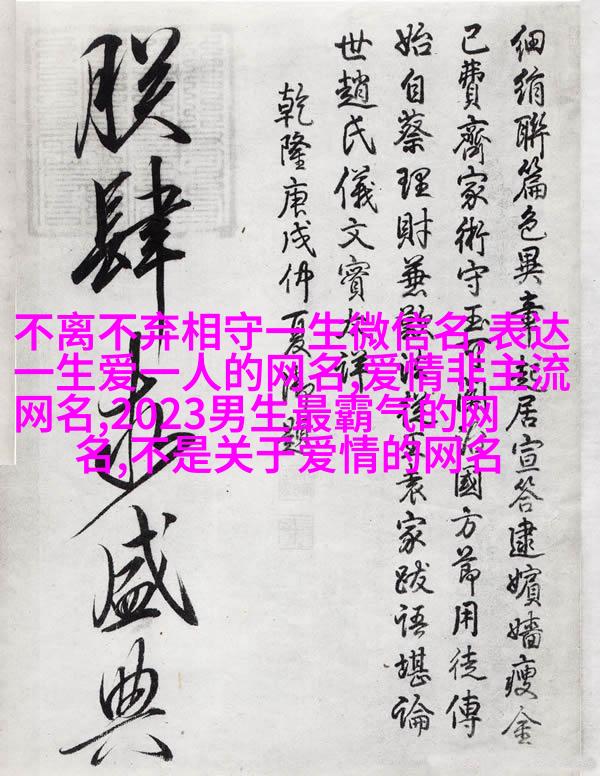 細絹聯篇色異章起居宣答逮嬪嬙瘦金
已費齊家術守玉國方節用徒傳
始自蔡理財兼袁家跋語堪論
世趙氏儀文實詳
乾隆庚戌仲夏題
盛典
不离不弃相守一生微信名,表达
一生爱一人的网名,爱情非主流
网名,2023男生最霸气的网
名,不是关于爱情的网名